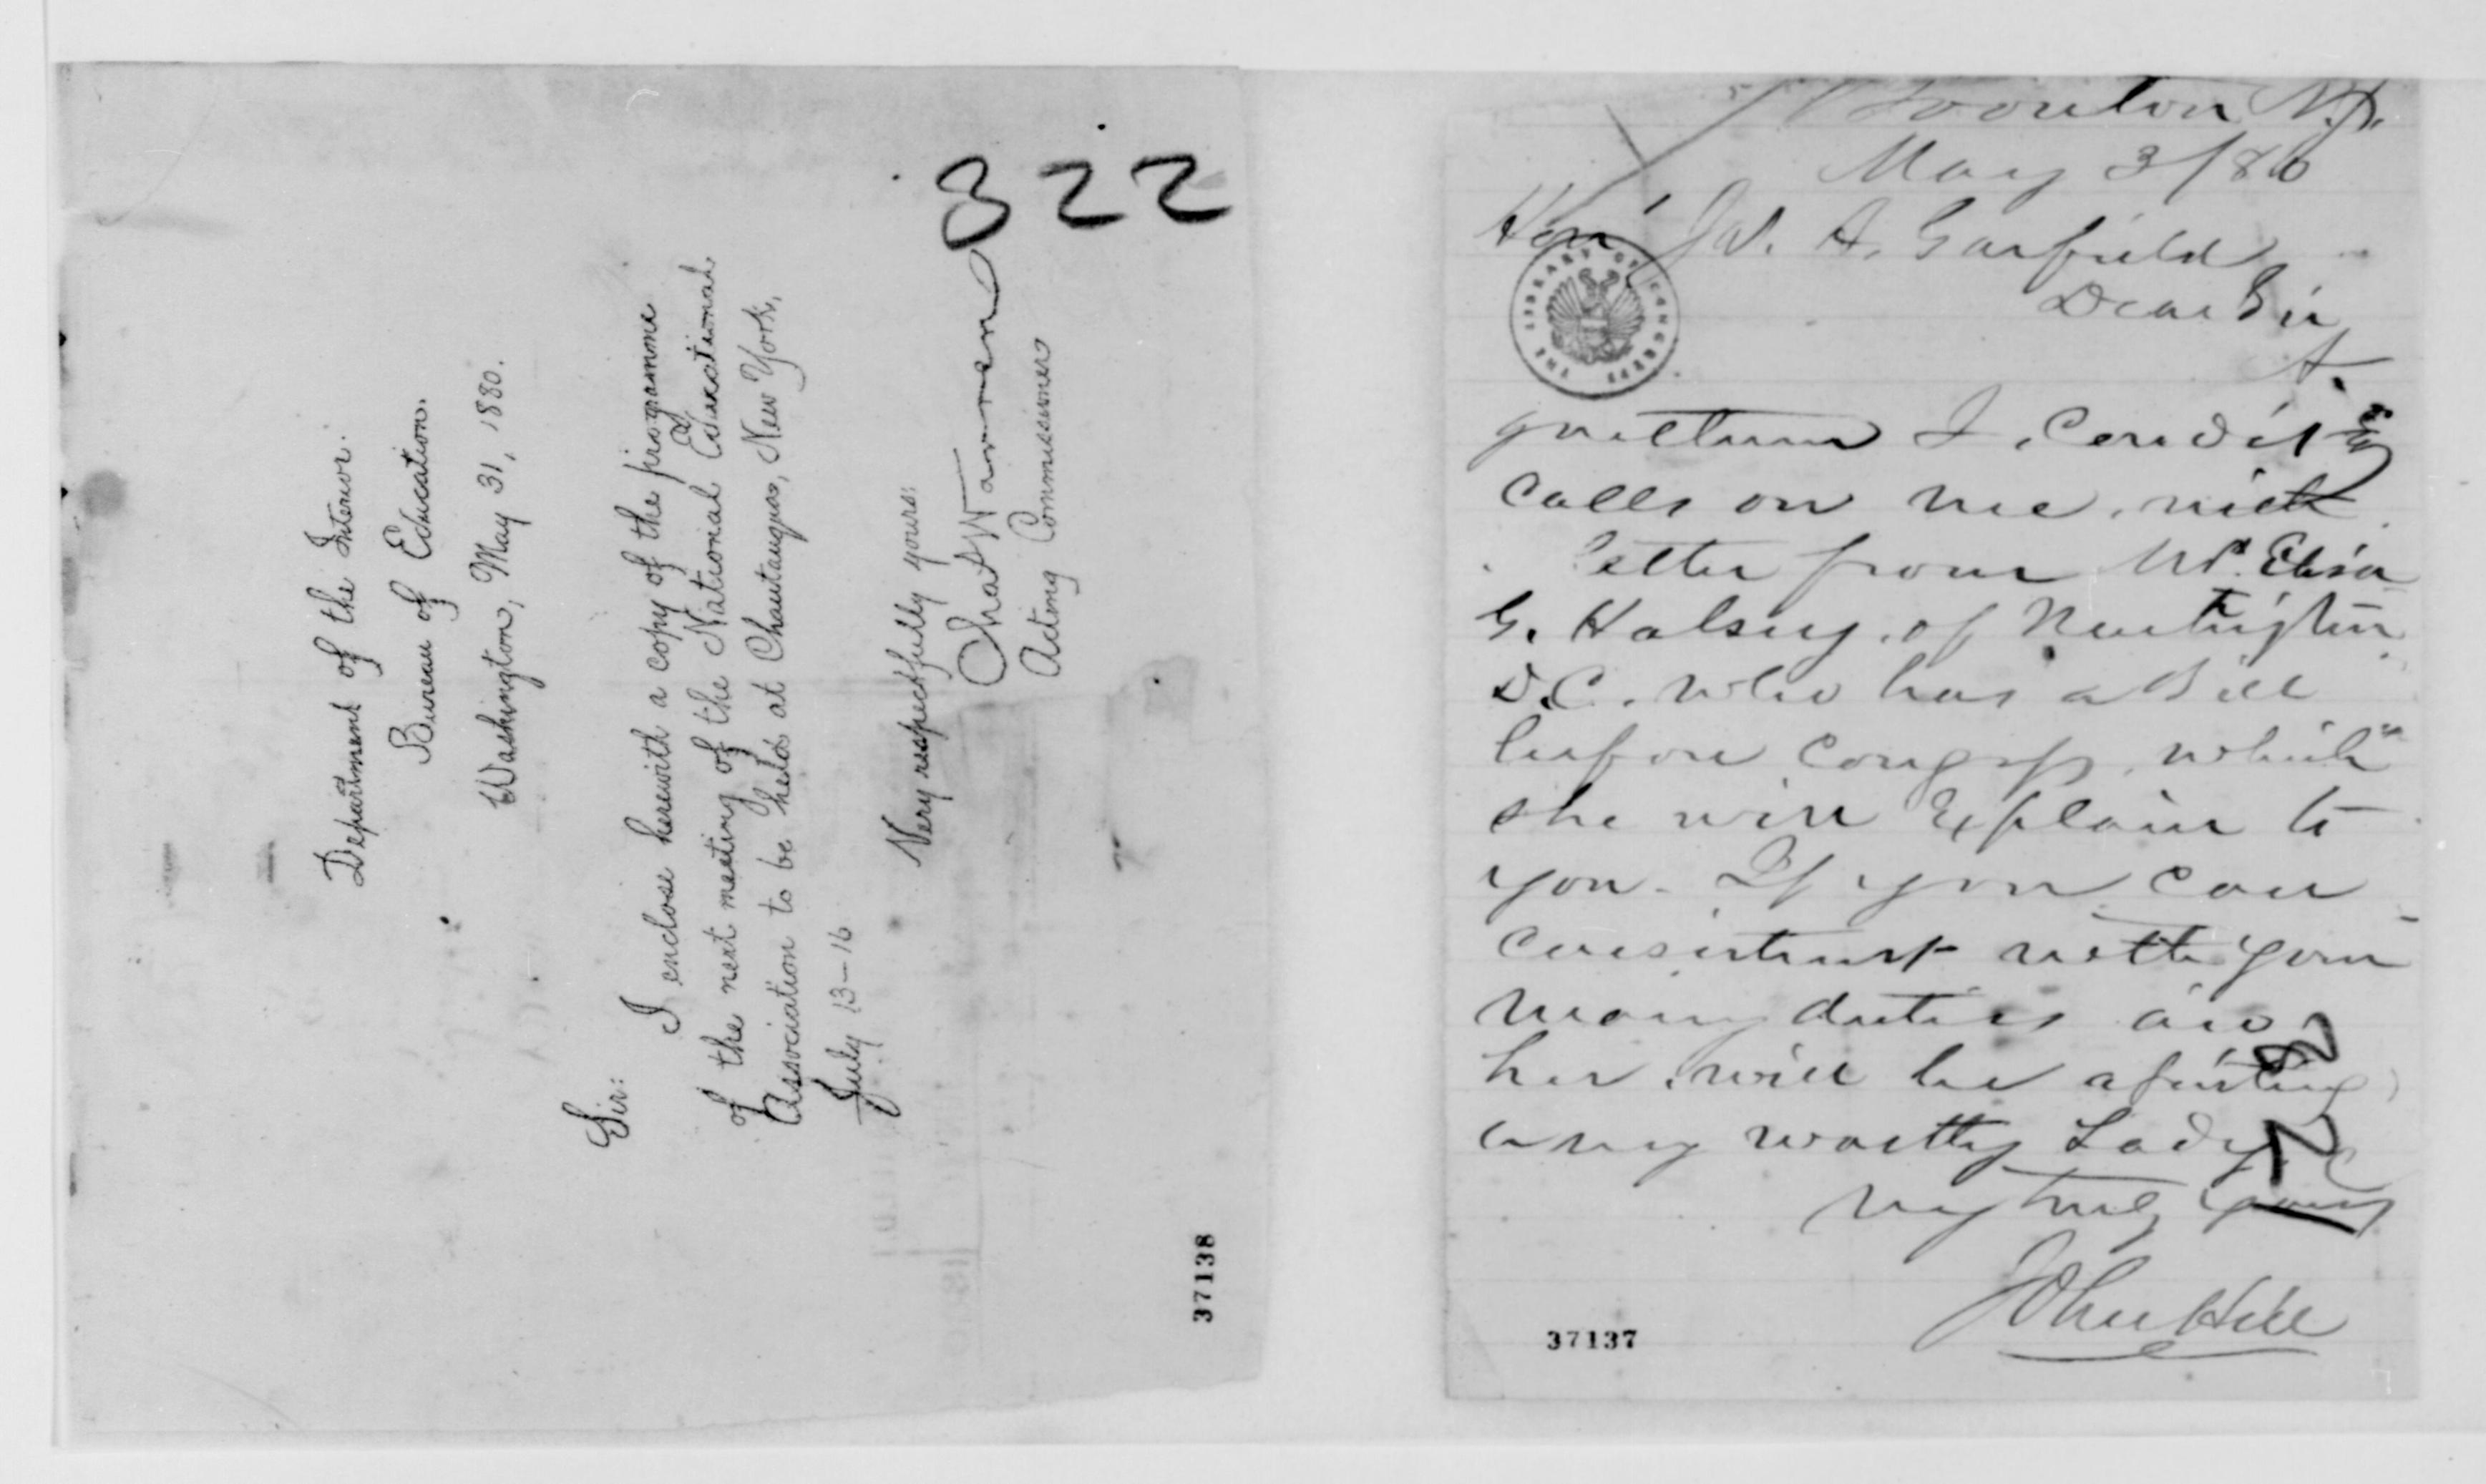 Department of the Interior.
Bureau of Education.
Washington, May 31, 1880.
Sir:
I enclose herewith a copy of the programme
of the next meeting of the National Educational
Association to be held at Chautauqua, New York,
July 13-16
Very respectfully yours:
Chas Warren
Acting Commissioner
322
37138
Boonton N.J.
May 31/80
Hon. Jas. A. Garfield
Dear Sir
A.
gentleman I. Condit Esq
calls on me, with
letter from Mrs. Eliza
G. Halsey, of Washington
D.C. who has a Bill
before Congress, which
she will Explain to
you. If you can
consistent with your
many duties aid
her, will be assisting
a very worthy Lady.
Very truly yours
John Hill
322
37137
THE LIBRARY OF CONGRESS